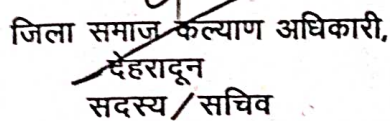 जिला समाज कल्याण अधिकारी,
देहरादून
सदस्य / सचिव